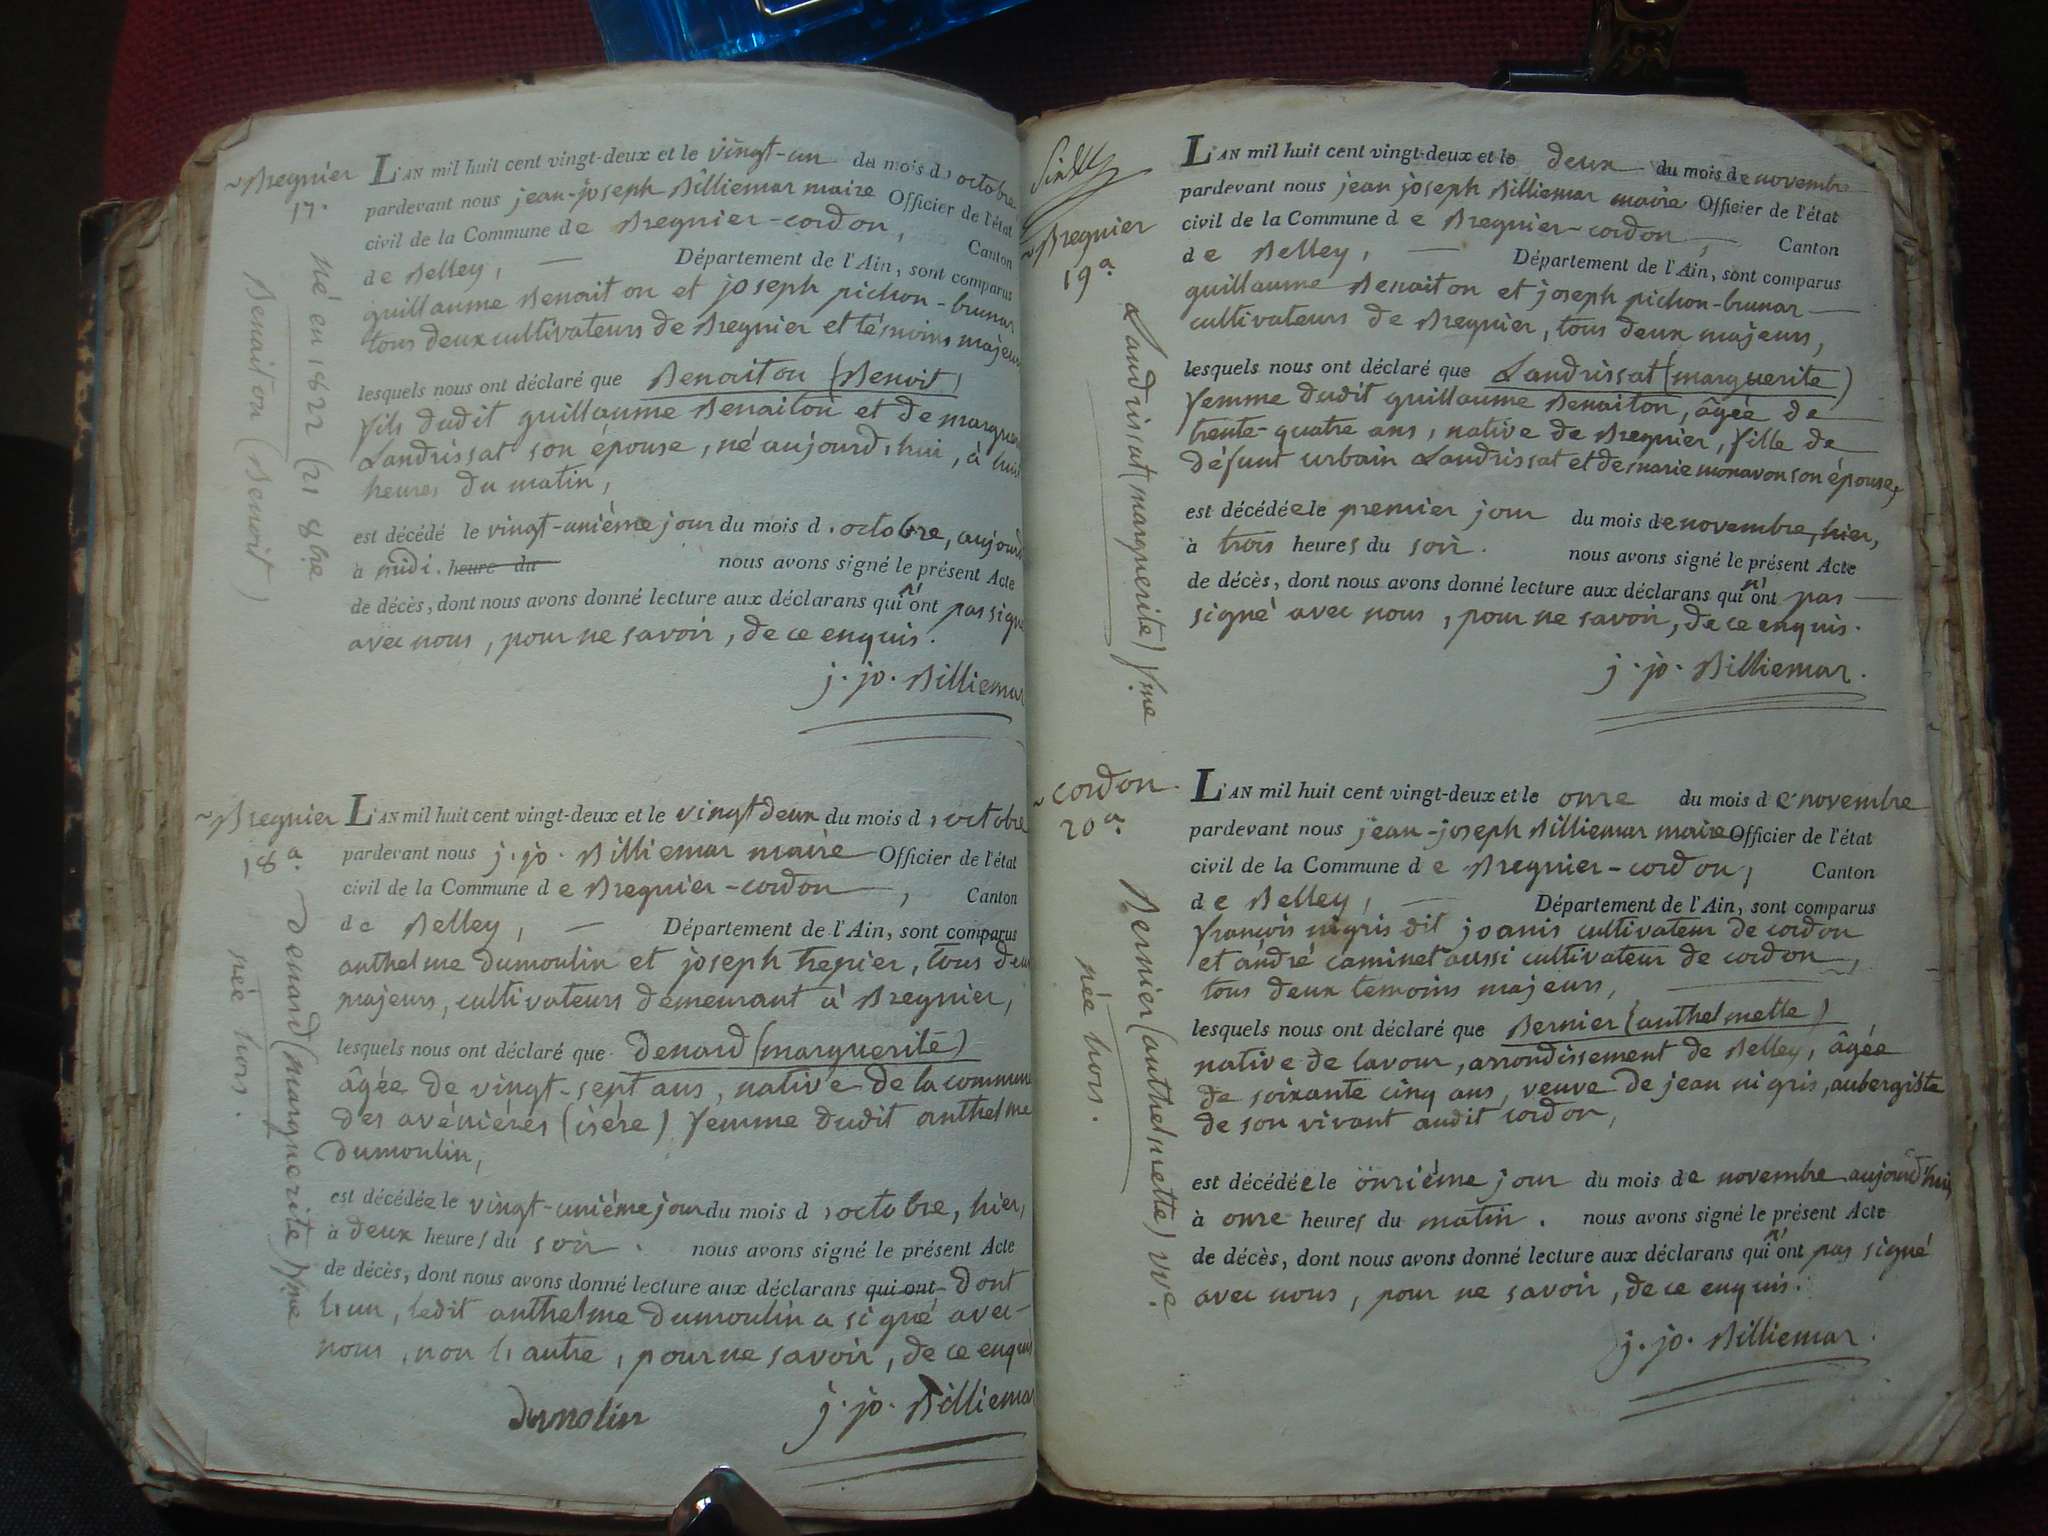 Bregnier
17.
né en 1822 (21 8bre
Benaiton (Benoit)
L'AN mil huit cent vingt-deux et le vingt-un du mois d'octobre
pardevant nous jean-joseph Billiemar maire Officier de l'état
civil de la Commune de Bregnier-cordon, Canton
de Belley, — Département de l'Ain, sont comparus
guillaume Benaiton et joseph pichon-brunar
tous deux cultivateurs de Bregnier et témoins majeurs
lesquels nous ont déclaré que Benaiton (Benoit)
fils dudit guillaume Benaiton et de margue
Landrissat son épouse, né aujourd'hui, à huit
heures du matin,
est décédé le vingt-unième jour du mois d'octobre, aujourd
à midi. heure du nous avons signé le présent Acte
de décès, dont nous avons donné lecture aux déclarans qui n'ont pas signé
avec nous, pour ne savoir, de ce enquis.
j. jo. Billiemar
Bregnier
18a.
denard (marguerite) fme
née hors.
L'AN mil huit cent vingt-deux et le vingt deux du mois d'octobre
pardevant nous j. jo. Billiemar maire Officier de l'état
civil de la Commune de Bregnier-cordon —, Canton
de Belley, — Département de l'Ain, sont comparus
anthelme dumoulin et joseph trepier, tous deux
majeurs, cultivateurs demeurant à Bregnier,
lesquels nous ont déclaré que denard (marguerite)
âgée de vingt-sept ans, native de la commune
des avénières (isére) femme dudit anthelme
dumoulin,
est décédée le vingt-unième jour du mois d'octobre, hier,
à deux heures du soir. nous avons signé le présent Acte
de décès, dont nous avons donné lecture aux déclarans qui ont dont
l'un, ledit anthelme dumoulin a signé avec-
nous, non l'autre, pour ne savoir, de ce enquis
dumolin j. jo. Billiemar
Bregnier
19a.
Landrissat (marguerite) fme
L'AN mil huit cent vingt-deux et le deux du mois de novembre
pardevant nous jean joseph Billiemar maire Officier de l'état
civil de la Commune de Bregnier-cordon —, Canton
de Belley, — Département de l'Ain, sont comparus
guillaume Benaiton et joseph pichon-brunar —
cultivateurs de Bregnier, tous deux majeurs,
lesquels nous ont déclaré que Landrissat (marguerite)
femme dudit guillaume Benaiton, âgée de
trente-quatre ans, native de Bregnier, fille de
défunt urbain Landrissat et de marie monavon son épouse,
est décédée le premier jour du mois de novembre, hier,
à trois heures du soir. nous avons signé le présent Acte
de décès, dont nous avons donné lecture aux déclarans qui n'ont pas —
signé avec nous, pour ne savoir, de ce enquis.
j. jo. Billiemar.
cordon.
20a.
Bernier (anthelmette) vve.
née hors.
L'AN mil huit cent vingt-deux et le onze du mois de novembre
pardevant nous jean-joseph Billiemar maire Officier de l'état
civil de la Commune de Bregnier-cordon, Canton
de Belley, — Département de l'Ain, sont comparus
françois nigris dit joanis cultivateur de cordon
et andré caminet aussi cultivateur de cordon,
tous deux temoins majeurs, —
lesquels nous ont déclaré que Bernier (anthelmette)
native de lavour, arrondissement de Belley, âgée
de soixante cinq ans, veuve de jean nigris, aubergiste
de son vivant audit cordon,
est décédée le onzième jour du mois de novembre aujourd'hui,
à onze heures du matin. nous avons signé le présent Acte
de décès, dont nous avons donné lecture aux déclarans qui n'ont pas signé
avec nous, pour ne savoir, de ce enquis.
j. jo. Billiemar.